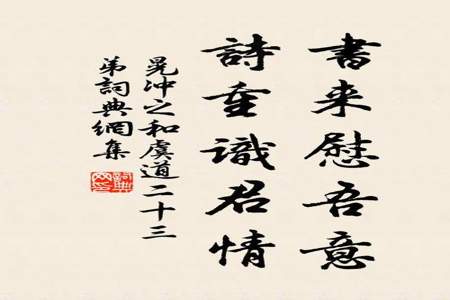 書来慰吾意
詩重識君情
晁冲之和虞道二十三
弟詞典網集